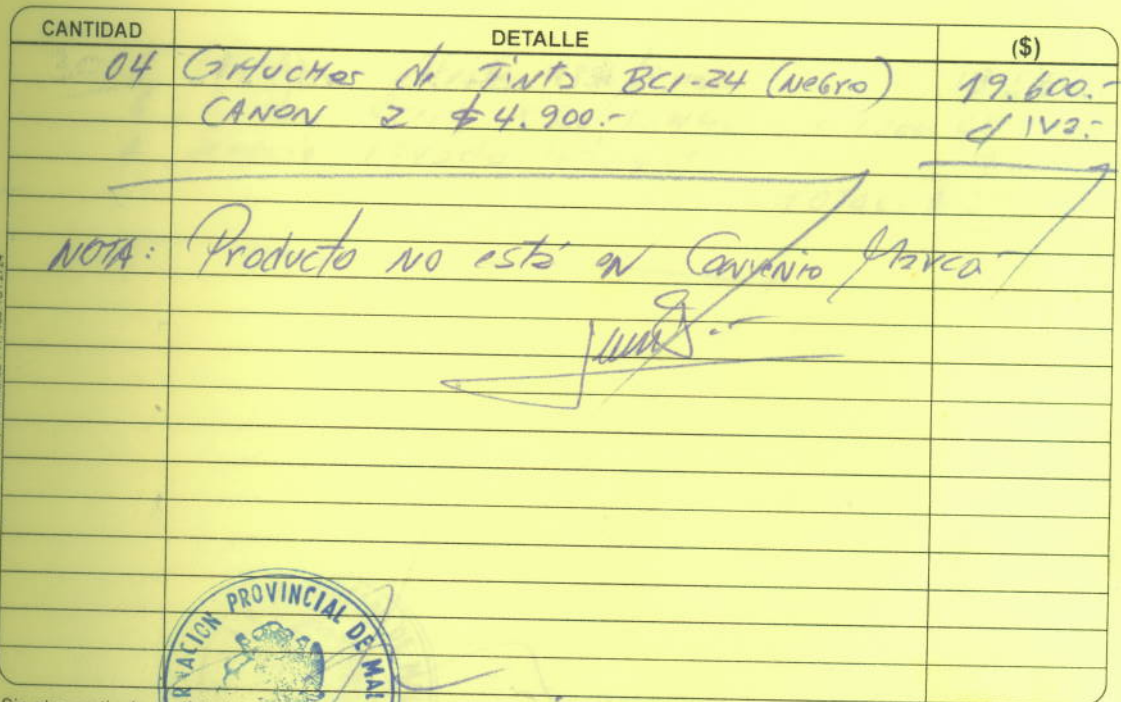 CANTIDAD DETALLE ($)
04 Cartuchos de Tinta BCI-24 (Negro) 19.600.-
CANON a $4.900.- c/ IVA.-
NOTA: Producto no está en Convenio Marco
PROVINCIAL DE